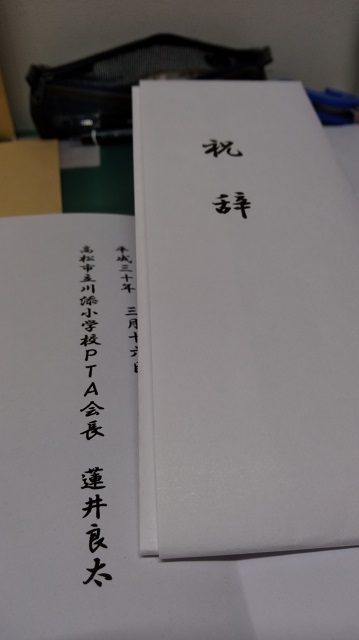 祝辞
平成三十年 三月十六日
高松市立川添小学校PTA会長 蓮井良太